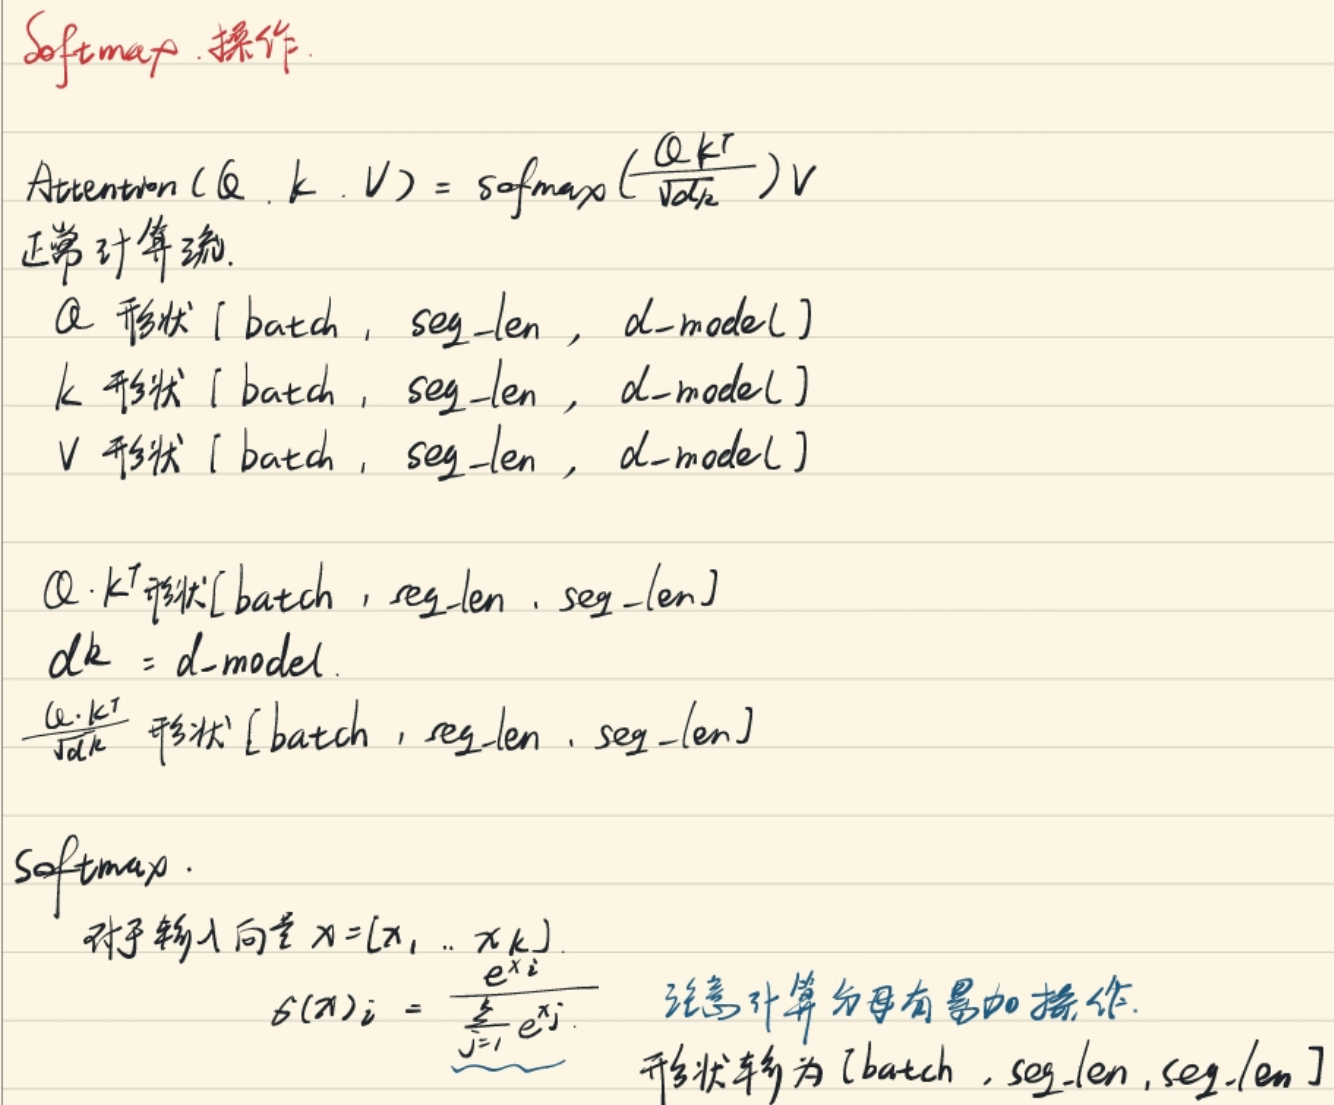 Softmax 操作.
Attention (Q . K . V) = sofmax (QK^T/√dk) V
正常计算流.
Q 形状 [batch , seq_len , d_model]
K 形状 [batch , seq_len , d_model]
V 形状 [batch , seq_len , d_model]
Q·K^T 形状 [batch , seq_len . seq_len]
dk = d_model.
Q·K^T/√dk 形状 [batch , seq_len . seq_len]
softmax .
对于输入向量 x=[x₁ .. xk].
σ(x)i = e^xi / Σ_{j=1}^k e^xj. 注意计算分母有累加操作.
形状转为 [batch , seq_len , seq_len]